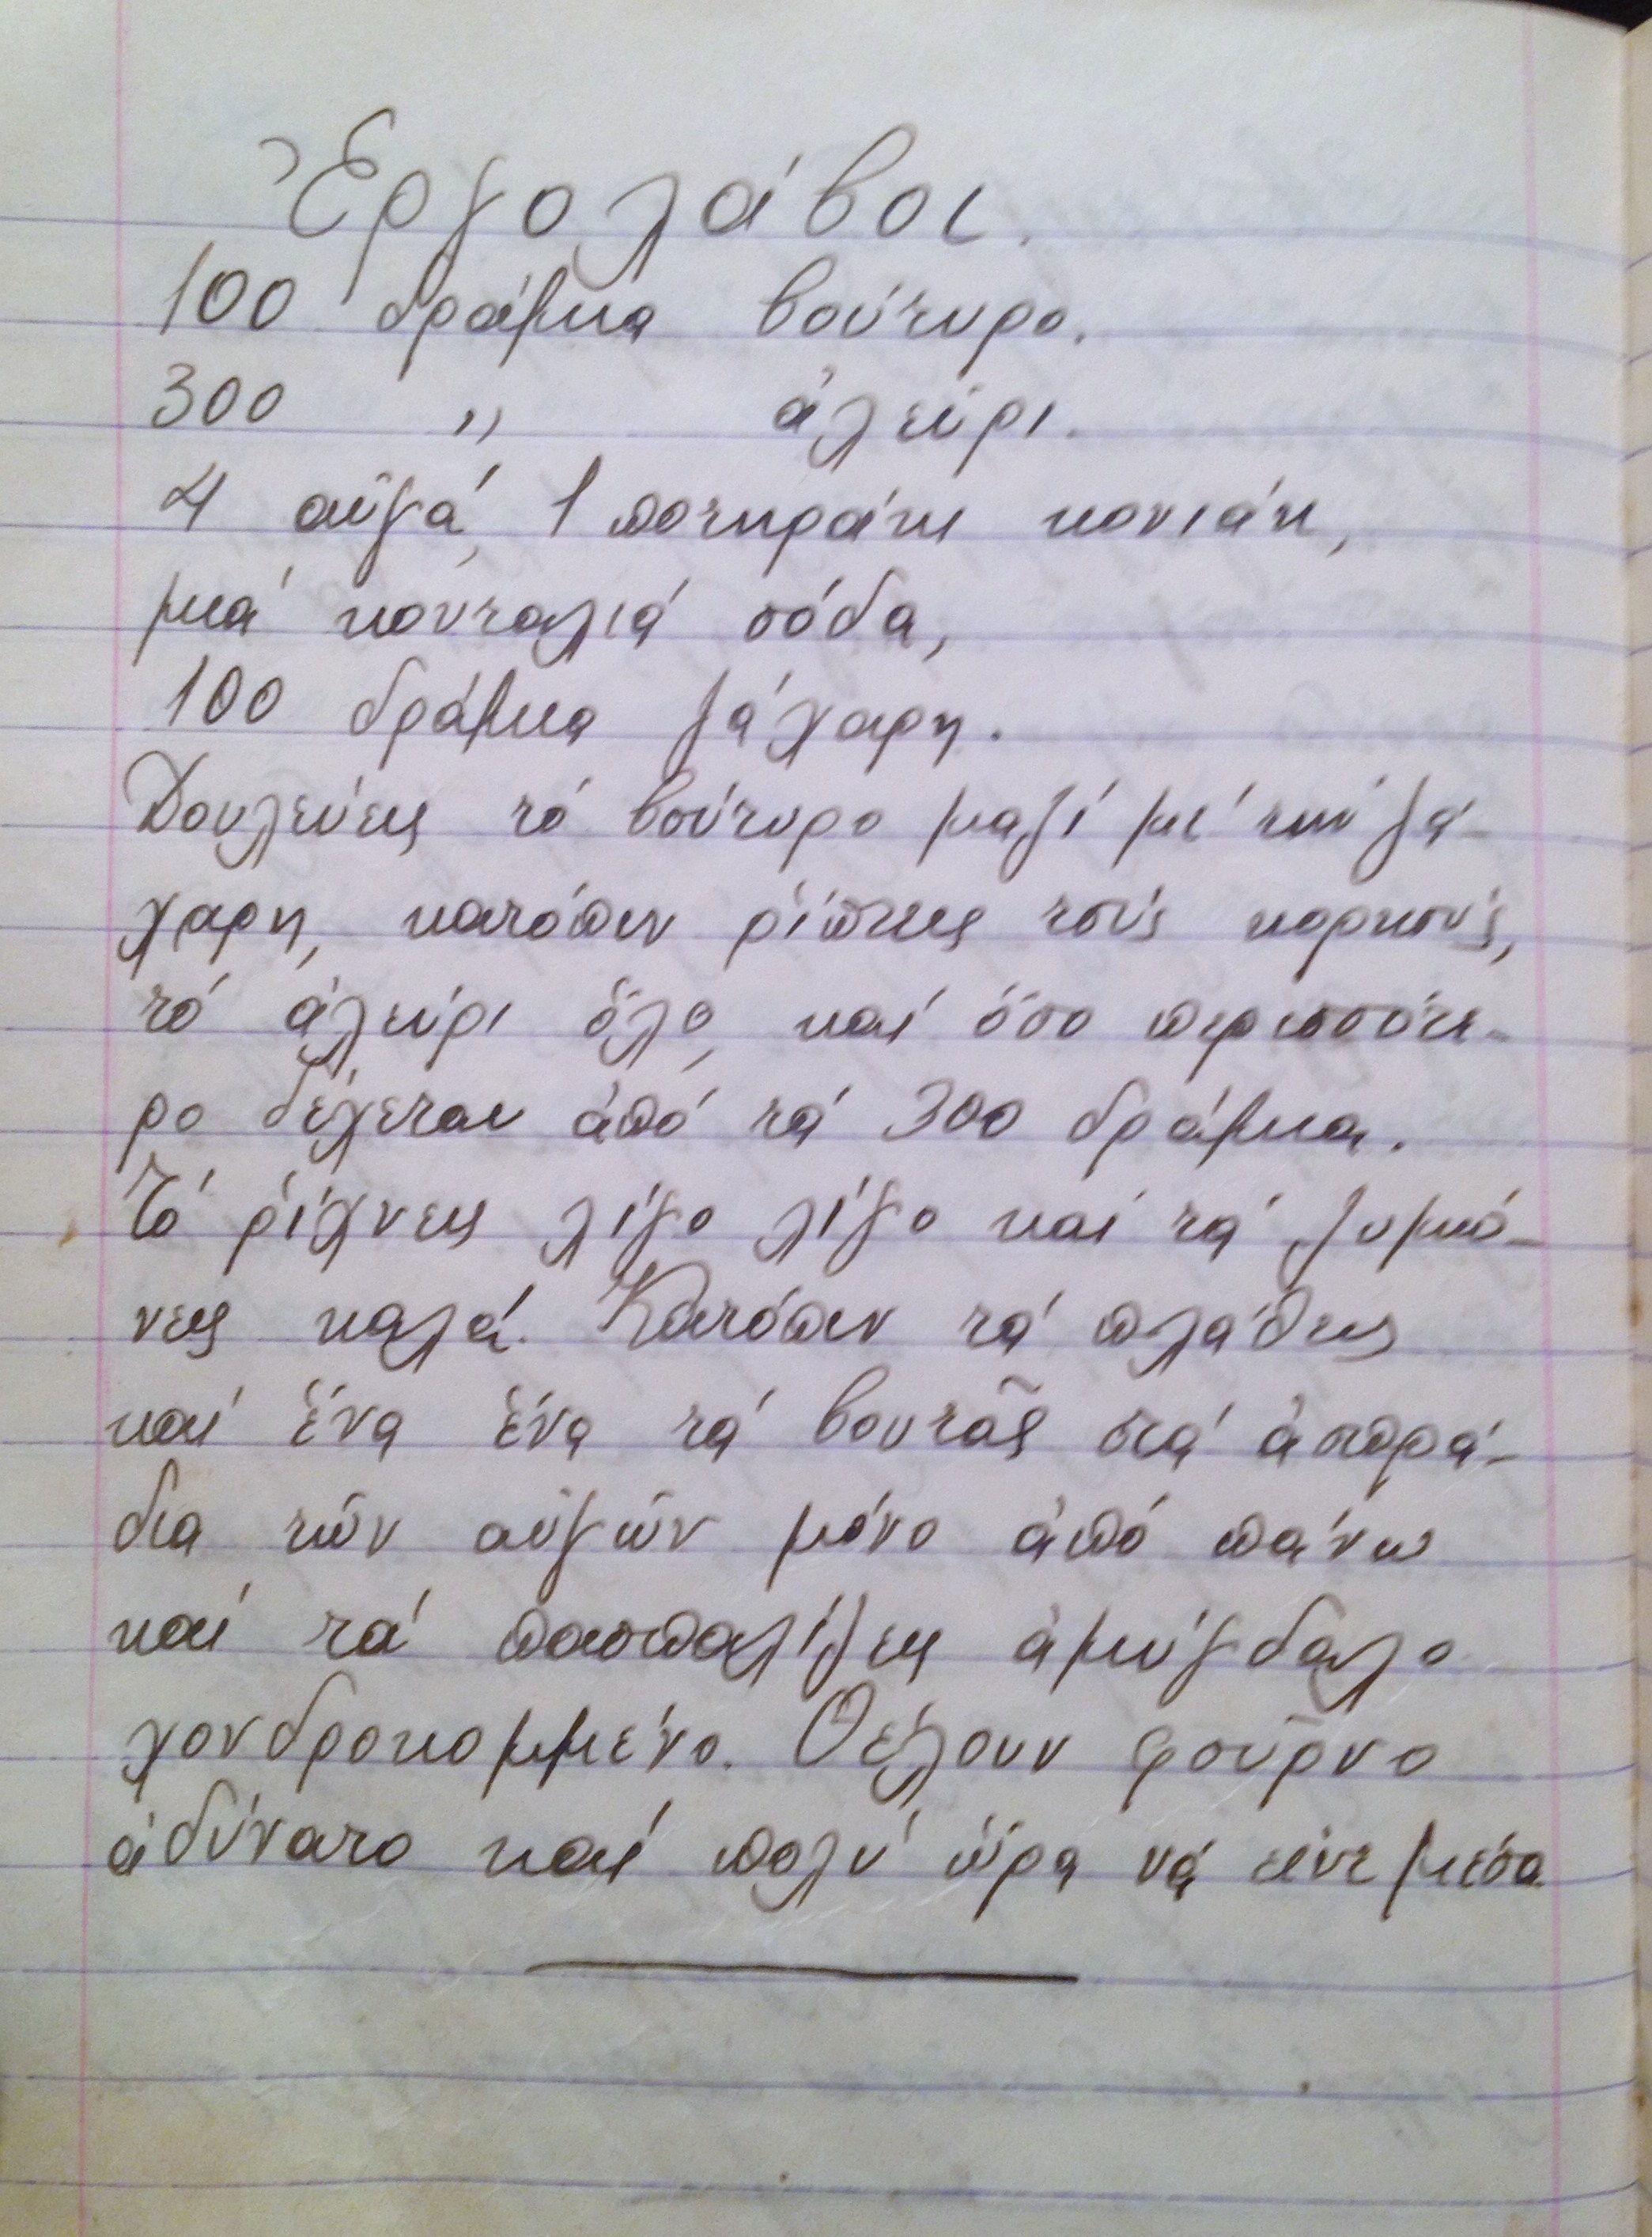 Ἐργολάβοι.
100 δράμια βούτυρο.
300 〃 ἀλεύρι.
4 αὐγά, 1 ποτηράκι κονιάκ,
μιά κουταλιά σόδα,
100 δράμια ζάχαρη.
Δουλεύεις τό βούτυρο μαζί μέ τήν ζά-
χαρη, κατόπιν ρίπτεις τούς κορκούς,
τό ἀλεύρι ὅλο, καί ὅσο περισσότε-
ρο δέχεται ἀπό τά 300 δράμια.
Τό ρίχνεις λίγο λίγο καί τά ζυμώ-
νεις καλά. Κατόπιν τά πλάθεις
καί ἕνα ἕνα τά βουτᾶς στά ἀσπρά-
δια τῶν αὐγῶν μόνο ἀπό πάνω
καί τά πασπαλίζεις ἀμύγδαλο
χονδροκομμένο. Θέλουν φοῦρνο
ἀδύνατο καί πολύ ὥρα νά εἶνε μέσα